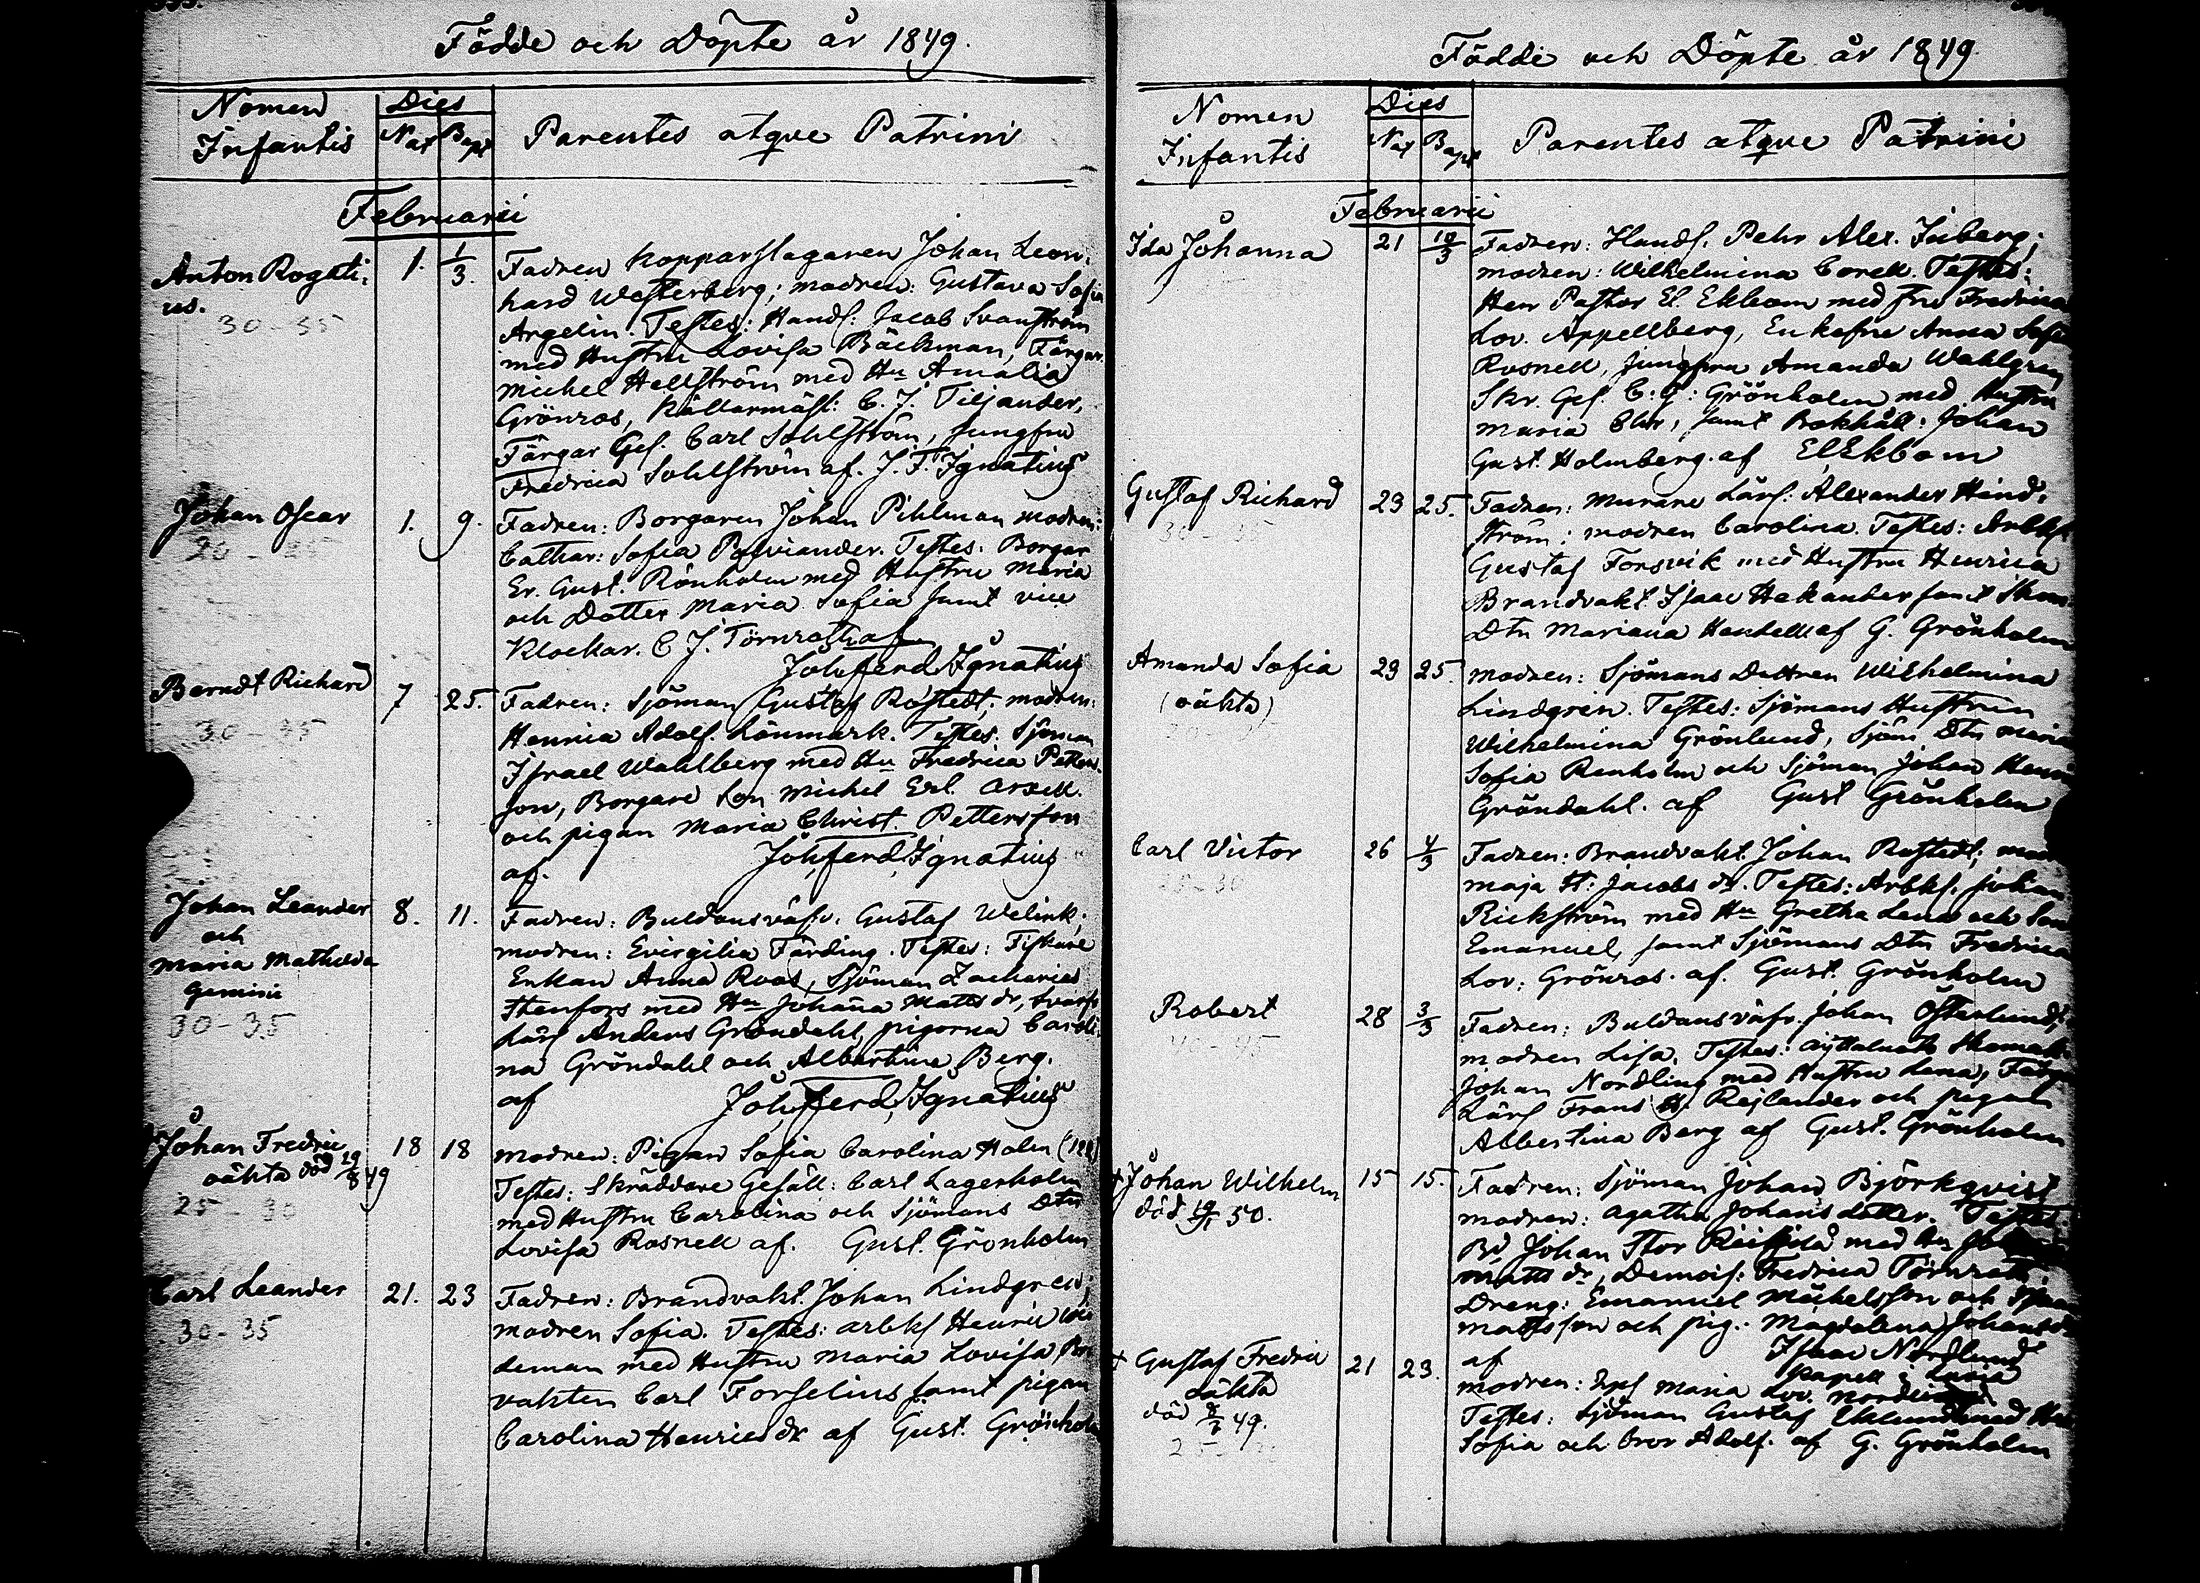 Födde och Döpte år 1849.
Nomen Infantis
Dies
Nat Bapt
Parentes atque Patrini
Februarii
Anton Rogati-
us.
30-35
1. 1/3.
Fadren Kopparslagaren Johan Leon-
hard Westerberg; modren: Gustava Sofia
Argelin. Testes: Handl: Jacob Svanström
med Hustru Lovisa Bäckman, Färgar.
Michel Hellström med Hu Amalia
Grönros, Källarmäst: C. J. Tiljander,
Färgar Ges. Carl Sohlström, Jungfru
Fredrica Sohlström af. J. F. Ignatius
Johan Oscar
1. 9.
Fadren: Borgaren Johan Pihlman modren:
Cathar: Sofia Palviander. Testes: Borgar
Er. Gust. Rönholm med Hustru Maria
och Dotter Maria Sofia samt vice
Klockar. C J. Törnroth af
Joh. Ferd. Ignatius
Berndt Richard
30-35
7 25.
Fadren: Sjöman Gustaf Rostedt; modren:
Henrica Adolf. Lönmark. Testes. Sjöman
Israel Wahlberg med Hu Fredrica Petters-
son, Borgare Son Michel Erl.
och pigan Maria Christ. Pettersson
af. Joh. Ferd. Ignatius
Johan Leander
och
Maria Mathilda
gemini
30-35
8. 11.
Fadren: Buldansväfv. Gustaf Welink;
modren: Evirgilia Färding. Testes: Fiskare
Enkan Anna Roos, Sjöman Zacharias
Stenfors med Hu Johanna Matts dr, Svarfv
Lärl Anders Gröndahl, pigorna Caroli-
na Gröndahl och Albertina Berg.
af Joh. Ferd. Ignatius
Johan Fredric
oäkta död 29/8 49
25-30
18 18
modren: Pigan Sofia Carolina Holm
Testes: Skräddare Gesäll: Carl Lagerholm
med Hustru Carolina och Sjömans Dtr
Lovisa Rosnell af. Gust. Grönholm
Carl Leander
30-35
21. 23
Fadren: Brandvakt. Johan Lindgren;
modren Sofia. Testes: arbks Henric
deman med Hustru Maria Lovisa,
vakten Carl Forselius samt pigan
Carolina Henricsdr af Gust. Grönholm
Födde och Döpte år 1849.
Nomen
Infantis
Dies
Nat Bapt
Parentes atque Patrini
Februarii
Ida Johanna
21 10/3
Fadren: Handl. Pehr Alex. Inberg;
modren: Wilhelmina Corell. Testes:
Herr Pastor El. Ekbom med fru Fredrica
Lov. Äppellberg, Enkefru Anna Sofia
Rosnell, Jungfru Amanda Wahlgren
Skr. Ges. C. G: Grönholm med Hustru
Maria Chr, samt Bokhåll: Johan
Gust. Holmberg. af El Ekbom
Gustaf Richard
30-35
23 25.
Fadren: Murare Lärl: Alexander Hind-
ström; modren Carolina. Testes: Arbks
Gustaf Forsvik med Hustru Henrica
Brandvakt. Isaac Hakander samt Skom.
Dtr Mariana Hendell af G. Grönholm
Amanda Sofia
(oäkta)
23 25.
modren: Sjömans Dottren Wilhelmina
Lindgren. Testes: Sjömans Hustrun
Wilhelmina Grönlund, Sjöm Dtr Maria
Sofia Renholm och Sjöman Johan Henr
Gröndahl. af Gust Grönholm
Carl Victor
25-30
26 4/3
Fadren: Brandvakt Johan Rostedt; mod
Maja St: Jacobs dr. Testes: Arbks. Johan
Rickström med Hu Gretha Lena och Son
Emanuel, samt Sjömans Dtr Fredrica
Lov: Grönros. af. Gust. Grönholm
Robert
40-45
28 3/3
Fadren: Buldansväfv. Johan Österlund;
modren Lisa. Testes: Skomak
Johan Nordling med Hustru Lena,
Lärl Frans H. Rejlander och pigan
Albertina Berg af Gust. Grönholm
+ Johan Wilhelm
död 19/1 50.
15 15.
Fadren: Sjöman Johan Björkqvist
modren: Agatha Johans dotter. Testes:
Bd, Johan Stor med Hu
Matts dr, Demois: Fredrica Törnroth,
Dreng: Emanuel Michelsson och Isaac
Mattsson och pig. Magdalena Johans dr
af Isaac Nordlund
+ Gustaf Fredric
oäkta
död 8/7 49.
21 23.
modren: Maria Lov. Nordlund
Testes: Sjöman Gustaf Eklund med Hu
Sofia och bror Adolf. af G. Grönholm